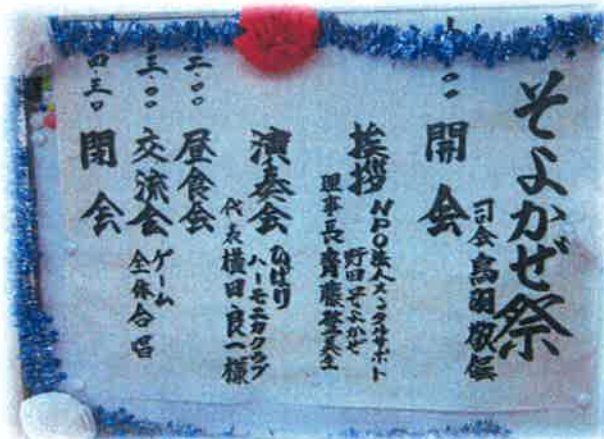 そよかぜ祭
司会 鳥羽
・〇〇 開会
挨拶
NPO法人メンタルサポート
野田そよかぜ
理事長 齊藤登美生
演奏会
ひばり
ハーモニカクラブ
代表 横田良一様
・〇〇 昼食会
三・〇〇 交流会
ゲーム
全体合唱
四・三〇 閉会